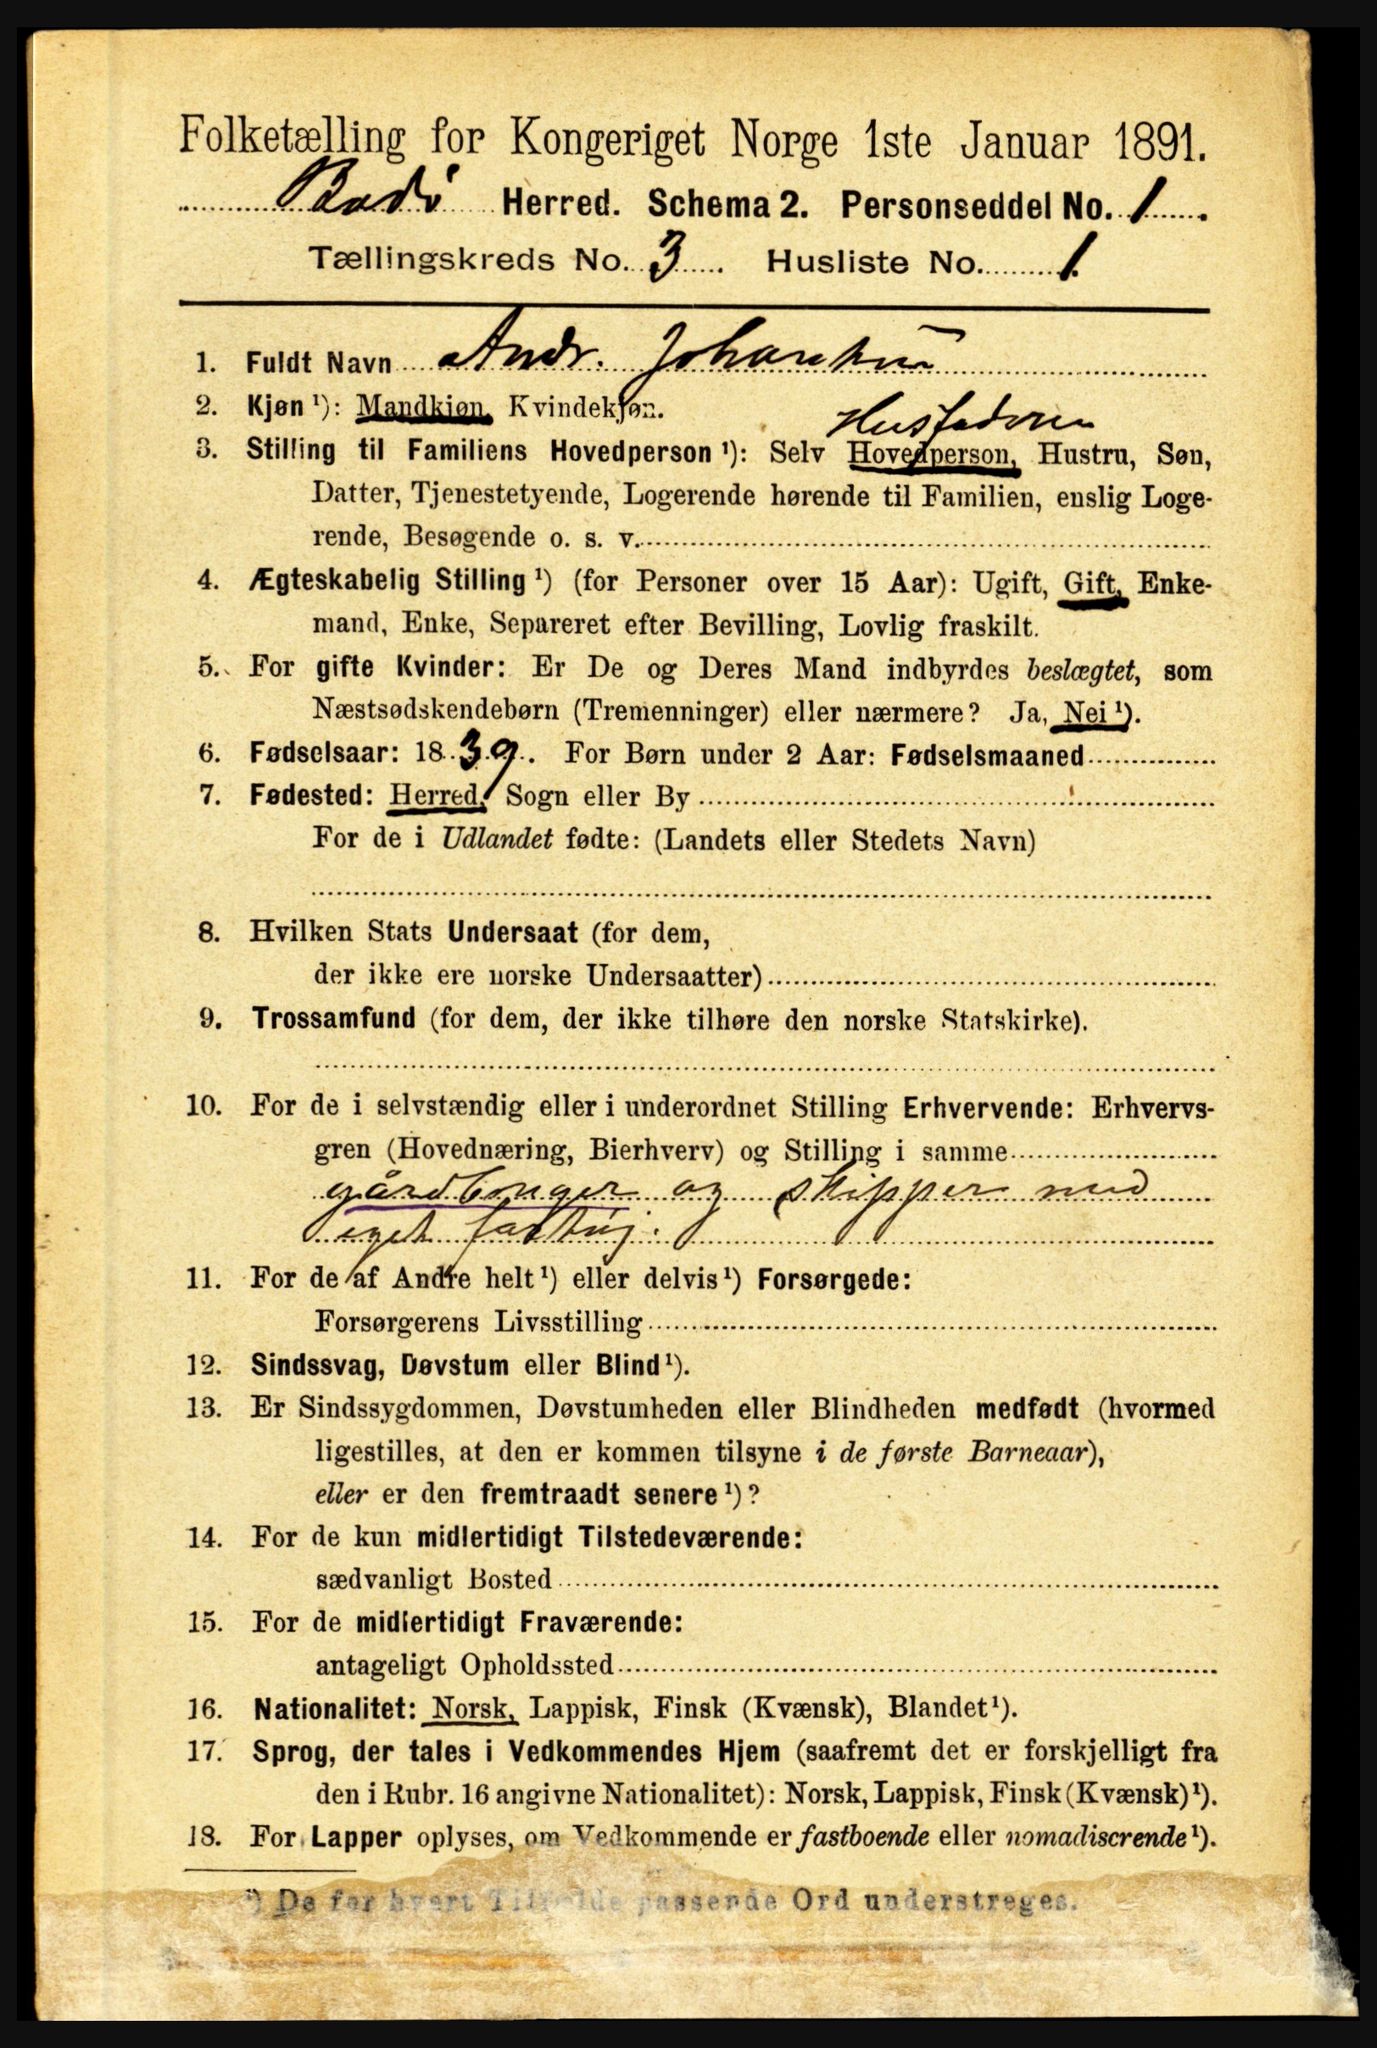 Folketælling for Kongeriget Norge 1ste Januar 1891.
Bodø Herred. Schema 2. Personseddel No. 1.
Tællingskreds No. 3. Husliste No. 1.
1. Fuldt Navn Andr. Johansen
2. Kjøn ¹): Mandkjøn, Kvindekjøn.
Husfaderen
3. Stilling til Familiens Hovedperson ¹): Selv Hovedperson, Hustru, Søn,
Datter, Tjenestetyende, Logerende hørende til Familien, enslig Loge-
rende, Besøgende o. s. v.
4. Ægteskabelig Stilling ¹) (for Personer over 15 Aar): Ugift, Gift, Enke-
mand, Enke, Separeret efter Bevilling, Lovlig fraskilt.
5. For gifte Kvinder: Er De og Deres Mand indbyrdes beslægtet, som
Næstsødskendebørn (Tremenninger) eller nærmere? Ja, Nei ¹).
6. Fødselsaar: 1839. For Børn under 2 Aar: Fødselsmaaned
7. Fødested: Herred, Sogn eller By
For de i Udlandet fødte: (Landets eller Stedets Navn)
8. Hvilken Stats Undersaat (for dem,
der ikke ere norske Undersaatter)
9. Trossamfund (for dem, der ikke tilhøre den norske Statskirke).
10. For de i selvstændig eller i underordnet Stilling Erhvervende: Erhvervs-
gren (Hovednæring, Bierhverv) og Stilling i samme
gårdbruger og skipper med
eget fartøj.
11. For de af Andre helt ¹) eller delvis ¹) Forsørgede:
Forsørgerens Livsstilling
12. Sindssvag, Døvstum eller Blind ¹).
13. Er Sindssygdommen, Døvstumheden eller Blindheden medfødt (hvormed
ligestilles, at den er kommen tilsyne i de første Barneaar),
eller er den fremtraadt senere ¹)?
14. For de kun midlertidigt Tilstedeværende:
sædvanligt Bosted
15. For de midlertidigt Fraværende:
antageligt Opholdssted
16. Nationalitet: Norsk, Lappisk, Finsk (Kvænsk), Blandet ¹).
17. Sprog, der tales i Vedkommendes Hjem (saafremt det er forskjelligt fra
den i Rubr. 16 angivne Nationalitet): Norsk, Lappisk, Finsk (Kvænsk) ¹).
18. For Lapper oplyses, om Vedkommende er fastboende eller nomadiserende ¹).
¹) De for hvert Tilfælde passende Ord understreges.